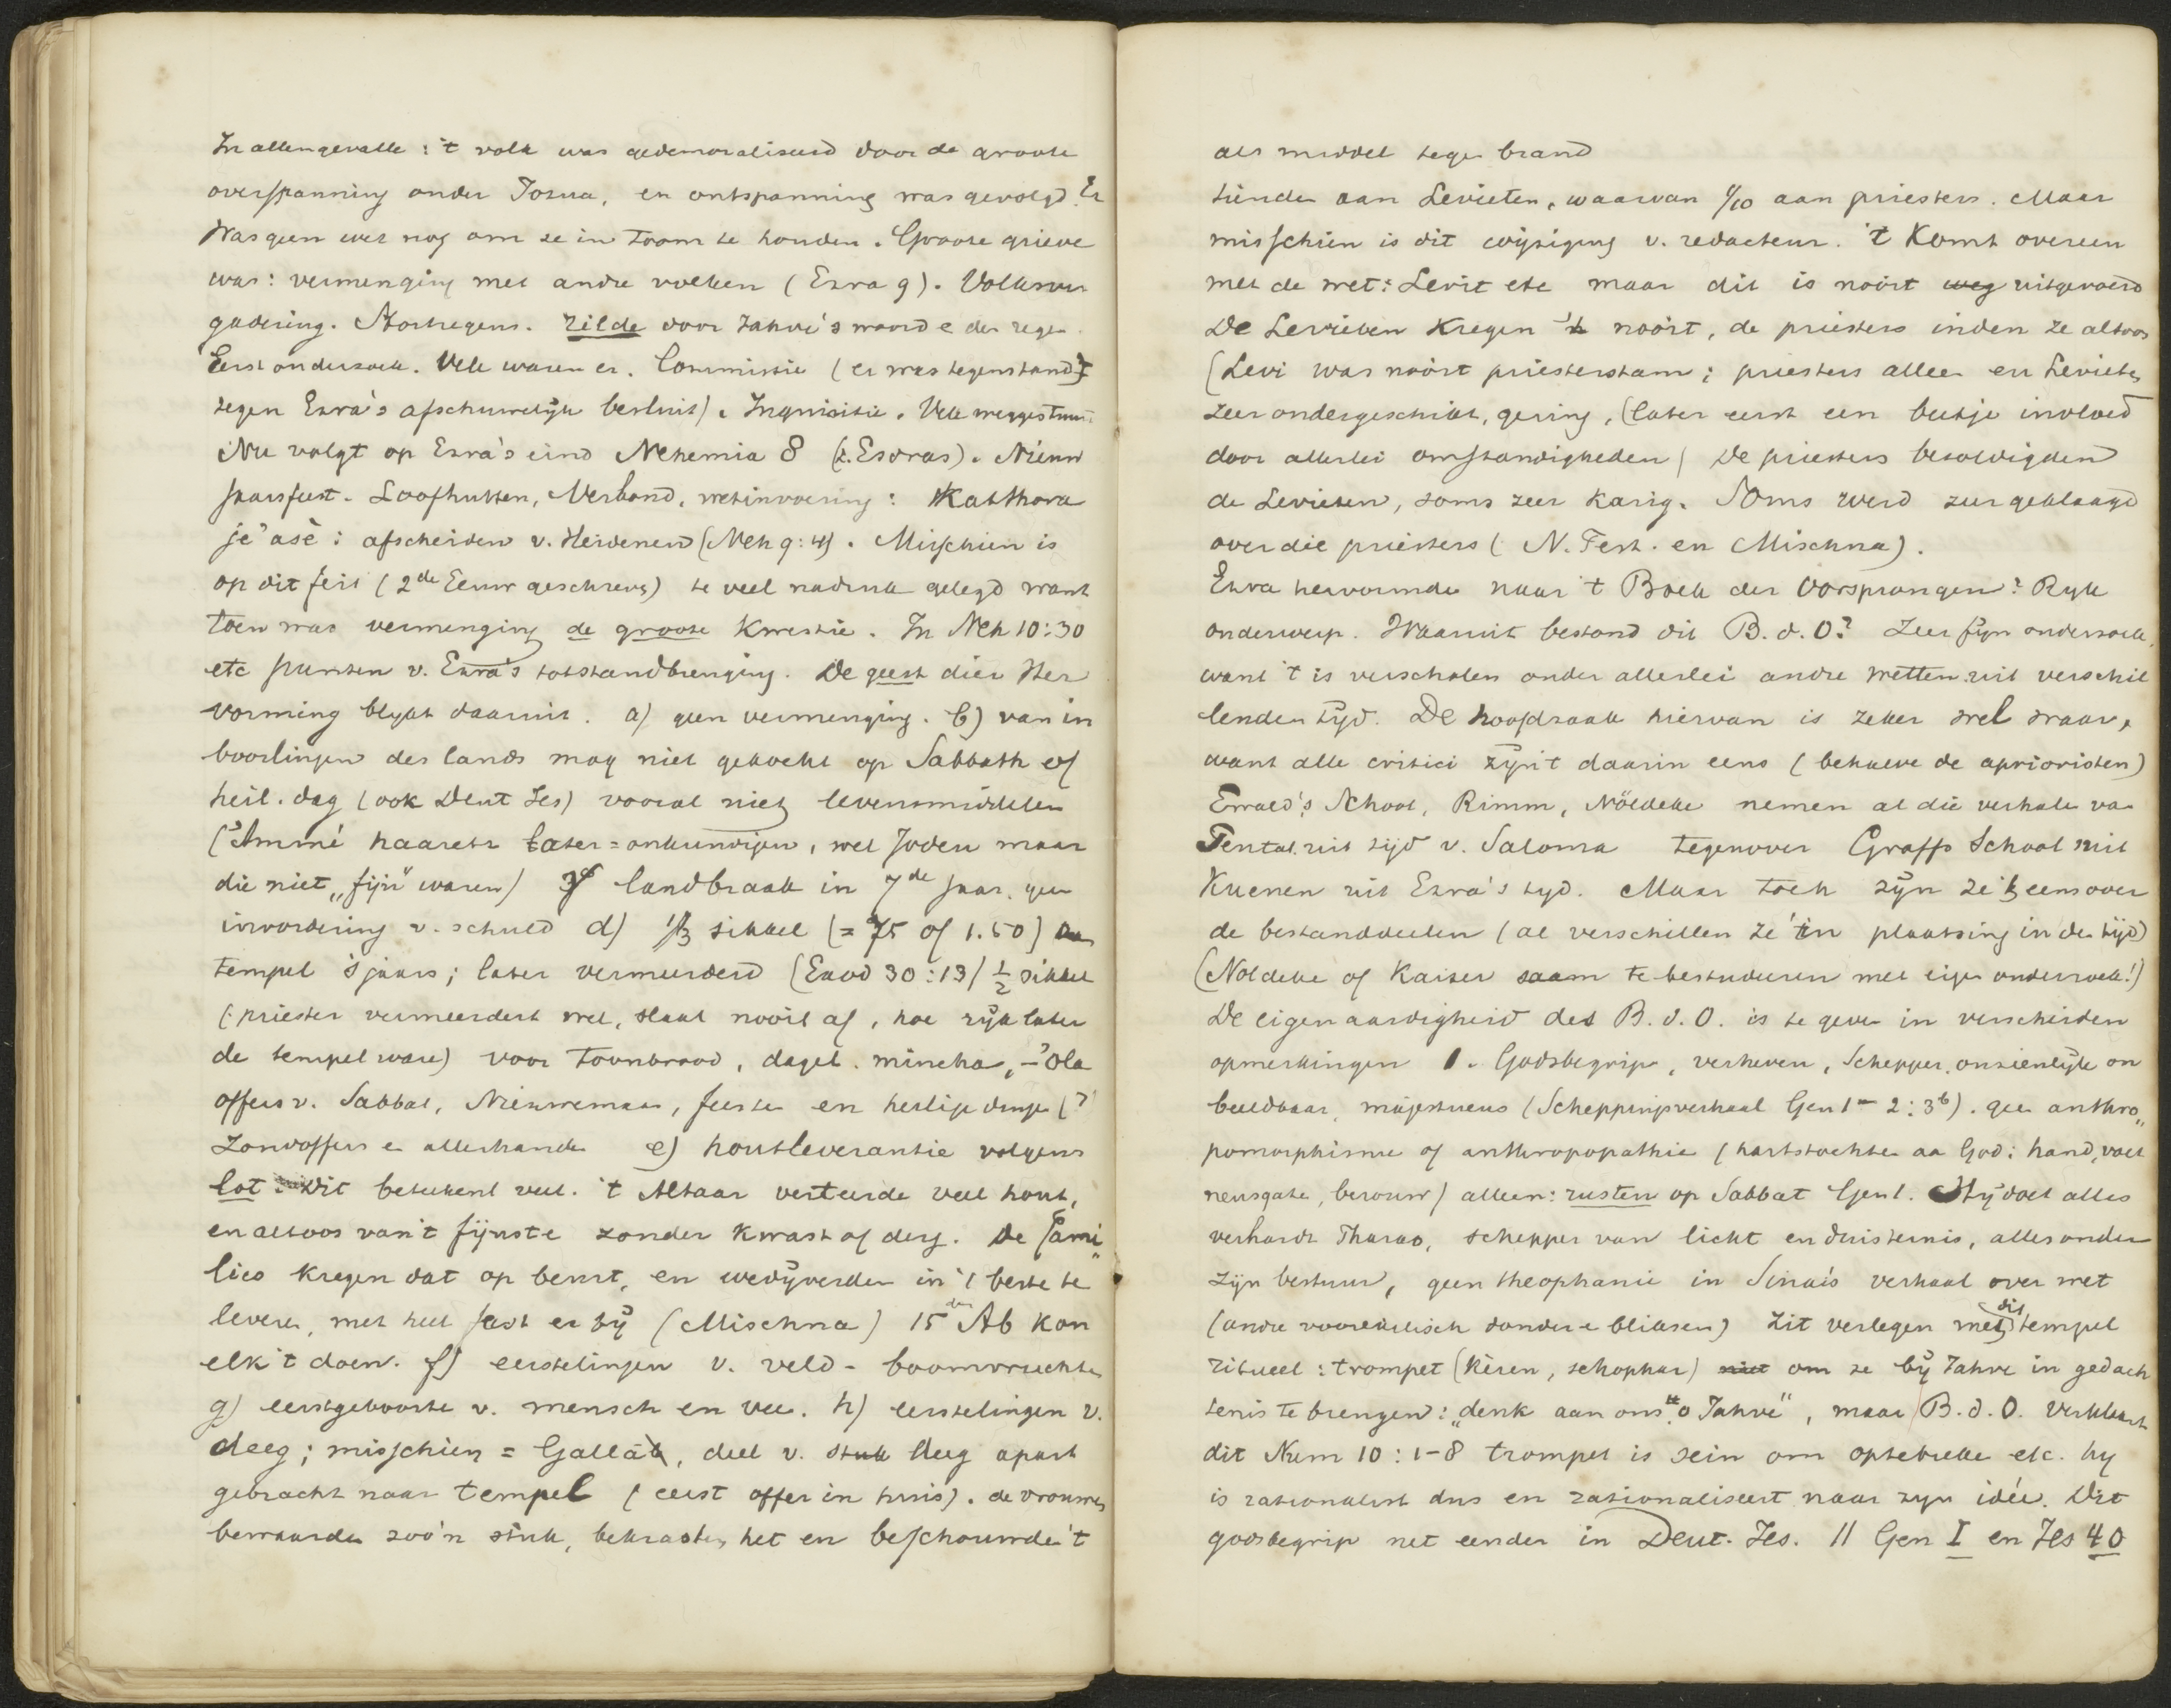 In allengevalle : 't volk was gedemoraliseerd door de groote
overspanning onder Jozua, en ontspanning was gevolgd. Er
was geen wet nog om ze in toom te houden. Groote grieve
was: vermenging met andre volken (Ezra 9). Volksver
gadering. Stortregens. rilde voor Jahve's woord e der regen
Eerst onderzoek. Vele waren er. Commissie (er was tegenstand
tegen Ezra's afschuwelijk besluit). Inquisitie. Vele weggestuurd
Nu volgt op Ezra's eind Nehemia 8 (2. Esdras). Nieuw
jaarsfeest. Loofhutten, Verbond, wetinvoering: Katthora
je'asè: afscheiden v. Heidenen (Neh 9:4). Misschien is
op dit feit (2de Eeuw geschreven) te veel nadruk gelegd want
toen was vermenging de groote kwestie. In Neh 10:30
etc punten v. Ezra's totstandbrenging. De geest dier Her
vorming blykt daaruit. a) geen vermenging. b) van in
boorlingen des lands mag niet gekocht op Sabbath of
heil. dag (ook Deut Jes) vooral niet levensmiddelen
('Ammé haarets later = onkundigen, wel Joden maar
die niet „fijn" waren) landbraak in 7de jaar, geen
invordering v. schuld d) 1/3 sikkel (= 75 of 1.50)
tempel 's jaars; later vermeerderd (Exod 30:13) 1/2 sikkel
(priester vermeerdert wel, slaat nooit af, hoe rijk later
de tempel ware) voor toonbrood, dagel. mincha, – 'ola
offers v. Sabbat, Nieuwemaan, feesten en heilige dingen (?
zondoffers en allerhande e) houtleverantie volgens
lot. Dit beteekent veel. 't Altaar verteerde veel hout,
en altoos van 't fijnste zonder kwast of derg. De fami„
lies kregen dat op beurt, en wedijverden in 't beste te
leveren, met heel feest er bij (Mischna) 15den Ab kon
elk 't doen. f) eerstelingen v. veld- boomvruchten
g) eerstgeboorte v. mensch en vee. h) eerstelingen v.
deeg; misschien = Gallah, deel v. stuk deeg apart
gebracht naar tempel (eerst offer in huis). de vrouwen
bewaarden zoo'n stuk, bekrasten het en beschouwde 't
als middel tegen brand
tienden aan Levieten, waarvan 1/10 aan priesters. Maar
misschien is dit wijziging v. redacteur. 't Komt overeen
met de wet: Levit etc maar dit is nooit weg uitgevoerd
De Levieten kregen 't nooit, de priesters inden ze altoos
(Levi was nooit priesterstam; priesters alleen en Levieten
zeer ondergeschikt, gering, (later eerst een beetje invloed
door allerlei omstandigheden) De priesters bezoldigden
de Levieten, soms zeer karig. Soms werd zeer geklaagd
over die priesters (N. Test. en Mischna).
Ezra hervormde naar 't Boek der Oorsprongen? Ryk
onderwerp. Waaruit bestond dit B. d. O? Zeer fijn onderzoek,
want 't is verscholen onder allerlei andre wetten uit verschil
lenden tijd. De hoofdzaak hiervan is zeker wel waar,
want alle critici zijn 't daarin eens (behalve de aprioristen)
Ewald's School, Rimm, Nöldeke nemen al die verhale van
Pentat. uit tijd v. Salomo tegenover Graffs School met
Kuenen uit Ezra's tyd. Maar toch zijn ze 't eens over
de bestanddeelen (al verschillen ze in plaatsing in den tijd)
(Noldeke of Kaiser saam te bestuderen met eigen onderzoek!)
De eigenaardigheid des B. d. O. is te geven in verscheiden
opmerkingen 1. Godsbegrip, verheven, Schepper, onzienlijk on
beeldbaar, majestueus (Scheppingsverhaal Gen 1 – 2:3b). geen anthro„
pomorphisme of anthropopathie (hartstochten aan God: hand, voet
neusgaten, berouw) alleen: rusten op Sabbat Gen 1. Hij doet alles
verhardt Pharao, schepper van licht en duisternis, alles onder
zijn bestuur, geen theophanie in Sinai's verhaal over wet
(andre voorexilisch donder e bliksem) Zit verlegen met dit tempel
ritueel: trompet (Kèren, schophar) niet om ze bij Jahve in gedach
tenis te brengen: „denk aan ons o Jahve", maar B. d. O. verklaart
dit Num 10:1-8 trompet is sein om optebreken etc. hy
is rationalist dus en rationaliseert naar zyn idée. Dit
godsbegrip net eender in Deut. Jes. || Gen I en Jes 40